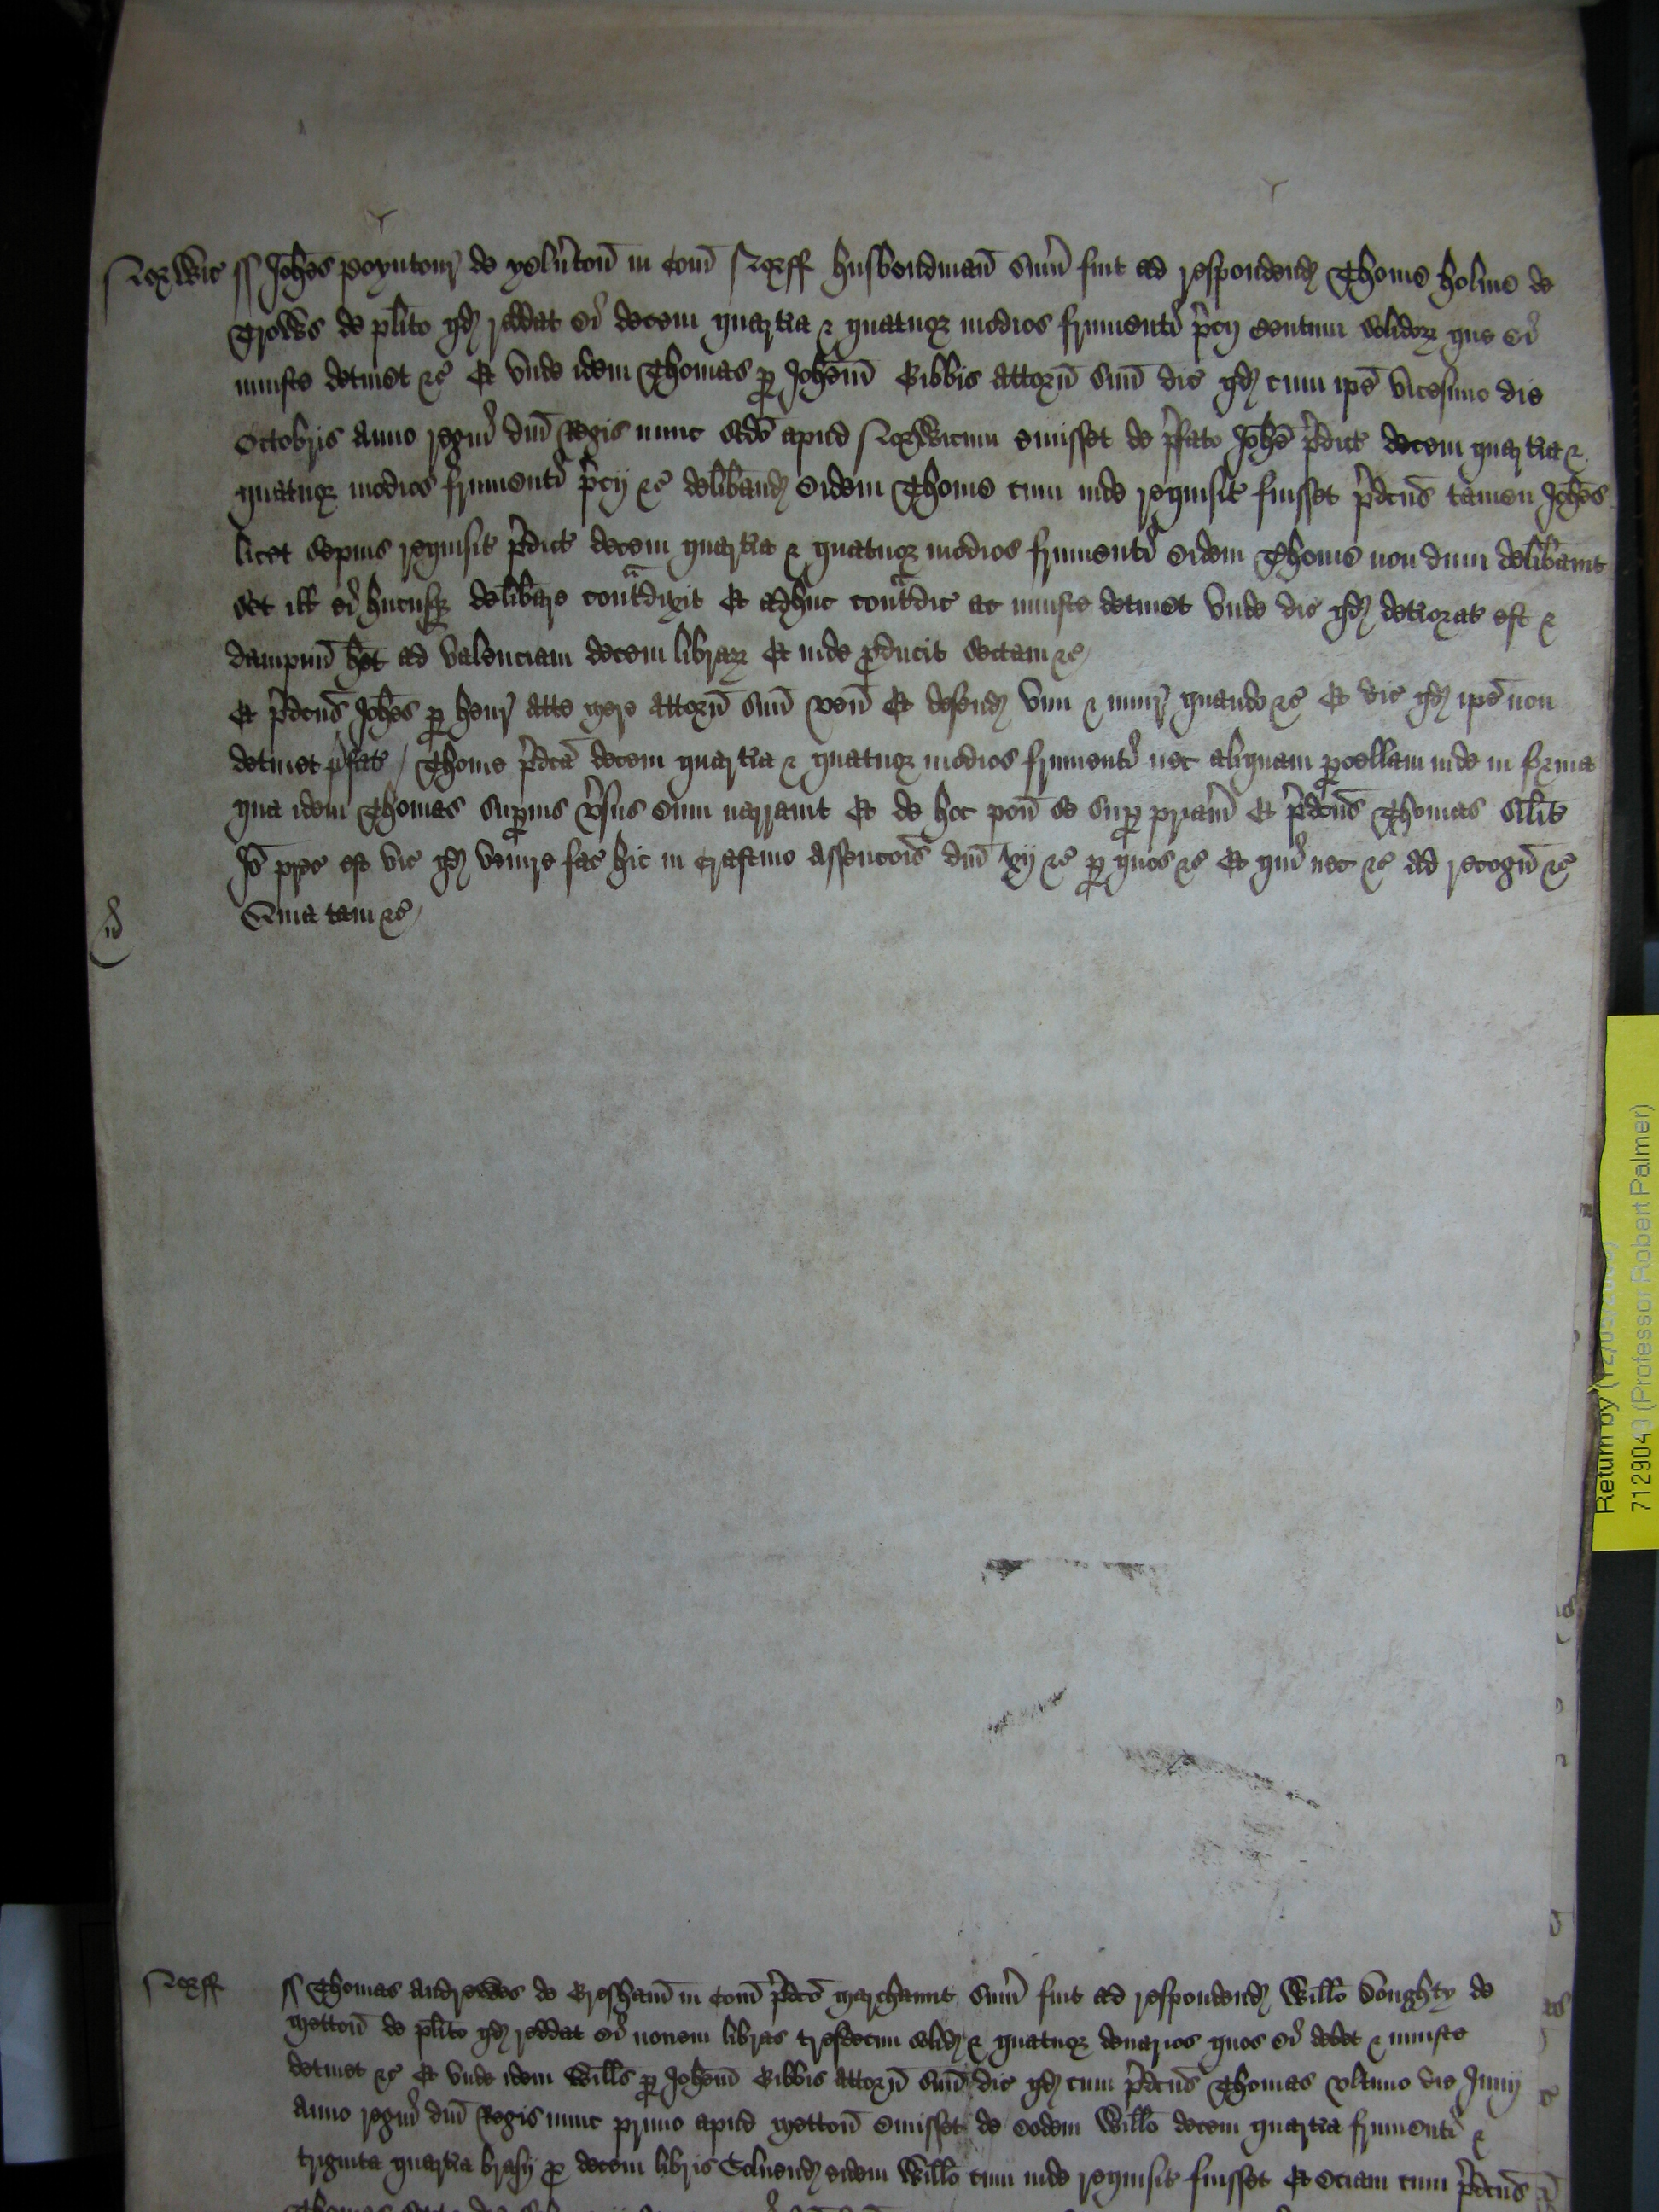 Norwic ss Johes Poyntour de yelu'ton in Com Norff husbondman sum fuit ad respondend Thome Holme de
Trows de plito qd reddat ei decem quartia & quatuor modios frumenti p'cij centum solidor que ei
iniuste detinet &c Et unde idem Thomas p Johem Gibbis attorn suu dic qd cum ipe vicesimo die
Octobris anno regni dni Regis nunc scdo apud Norwicum emisset de p'fato Johe p'dict decem quartia &
quatuor modios frumenti p'cij &c deliband eidem Thome cum inde requisit fuisset p'dcus tamen Johes
licet sepius requisit p'dict decem quartia & quatuor modios frumenti eidem Thome non dum delibauit
set ill ei hucusq delibare cont'dixit Et adhuc cont'dic ac iniuste detinet unde dic qd deteriorat est &
dampnu het ad valenciam decem librar Et inde producit sectam &c
Et p'dcus Johes p Henr atte mere attorn suu ven Et defend vim & iniur quando &c Et dic qd ipe non
detinet p'fat Thome p'dca decem quartia & quatuor modios frumenti nec aliquam pcellam inde in forma
qua idem Thomas supius v'sus eum narrauit Et de hoc pon se sup priam Et p'dcus Thomas silit
Io prec est vic qd venire fac hic in Crastino Ascencois dni xij &c p quos &c Et qui nec &c ad recogn &c
Quia tam &c
Norff ss Thomas Andrewes de Gresham in Com p'dco marchaunt sum fuit ad respondend Willo Doughty de
metton de plito qd reddat ei novem libras tresdecim solid & quatuor denarios quos ei debet & iniuste
detinet &c Et unde idem Wills p Johem Gibbis attorn suu dic qd cum p'dcus Thomas ultimo die Junij
Anno regni dni Regis nunc primo apud metton emisset de eodem Willo decem quartia frumenti &
triginta quartia brasij p decem libris Soluend eidem Willo cum inde requisit fuisset Et eciam cum p'dcus
Return by (12/05/
7129040 (Professor Robert Palmer)